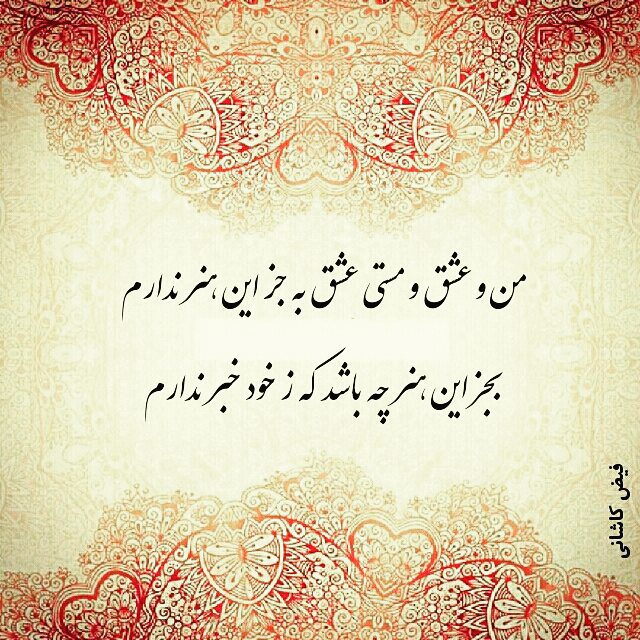 من و عشق و مستی عشق به جز این هنر ندارم
بجز این هنر چه باشد که ز خود خبر ندارم
فیض کاشانی